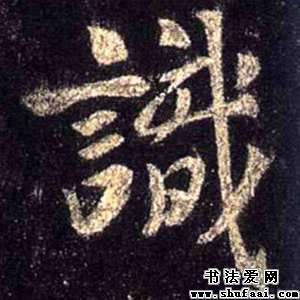 識
书法爱网
www.shufaai.com